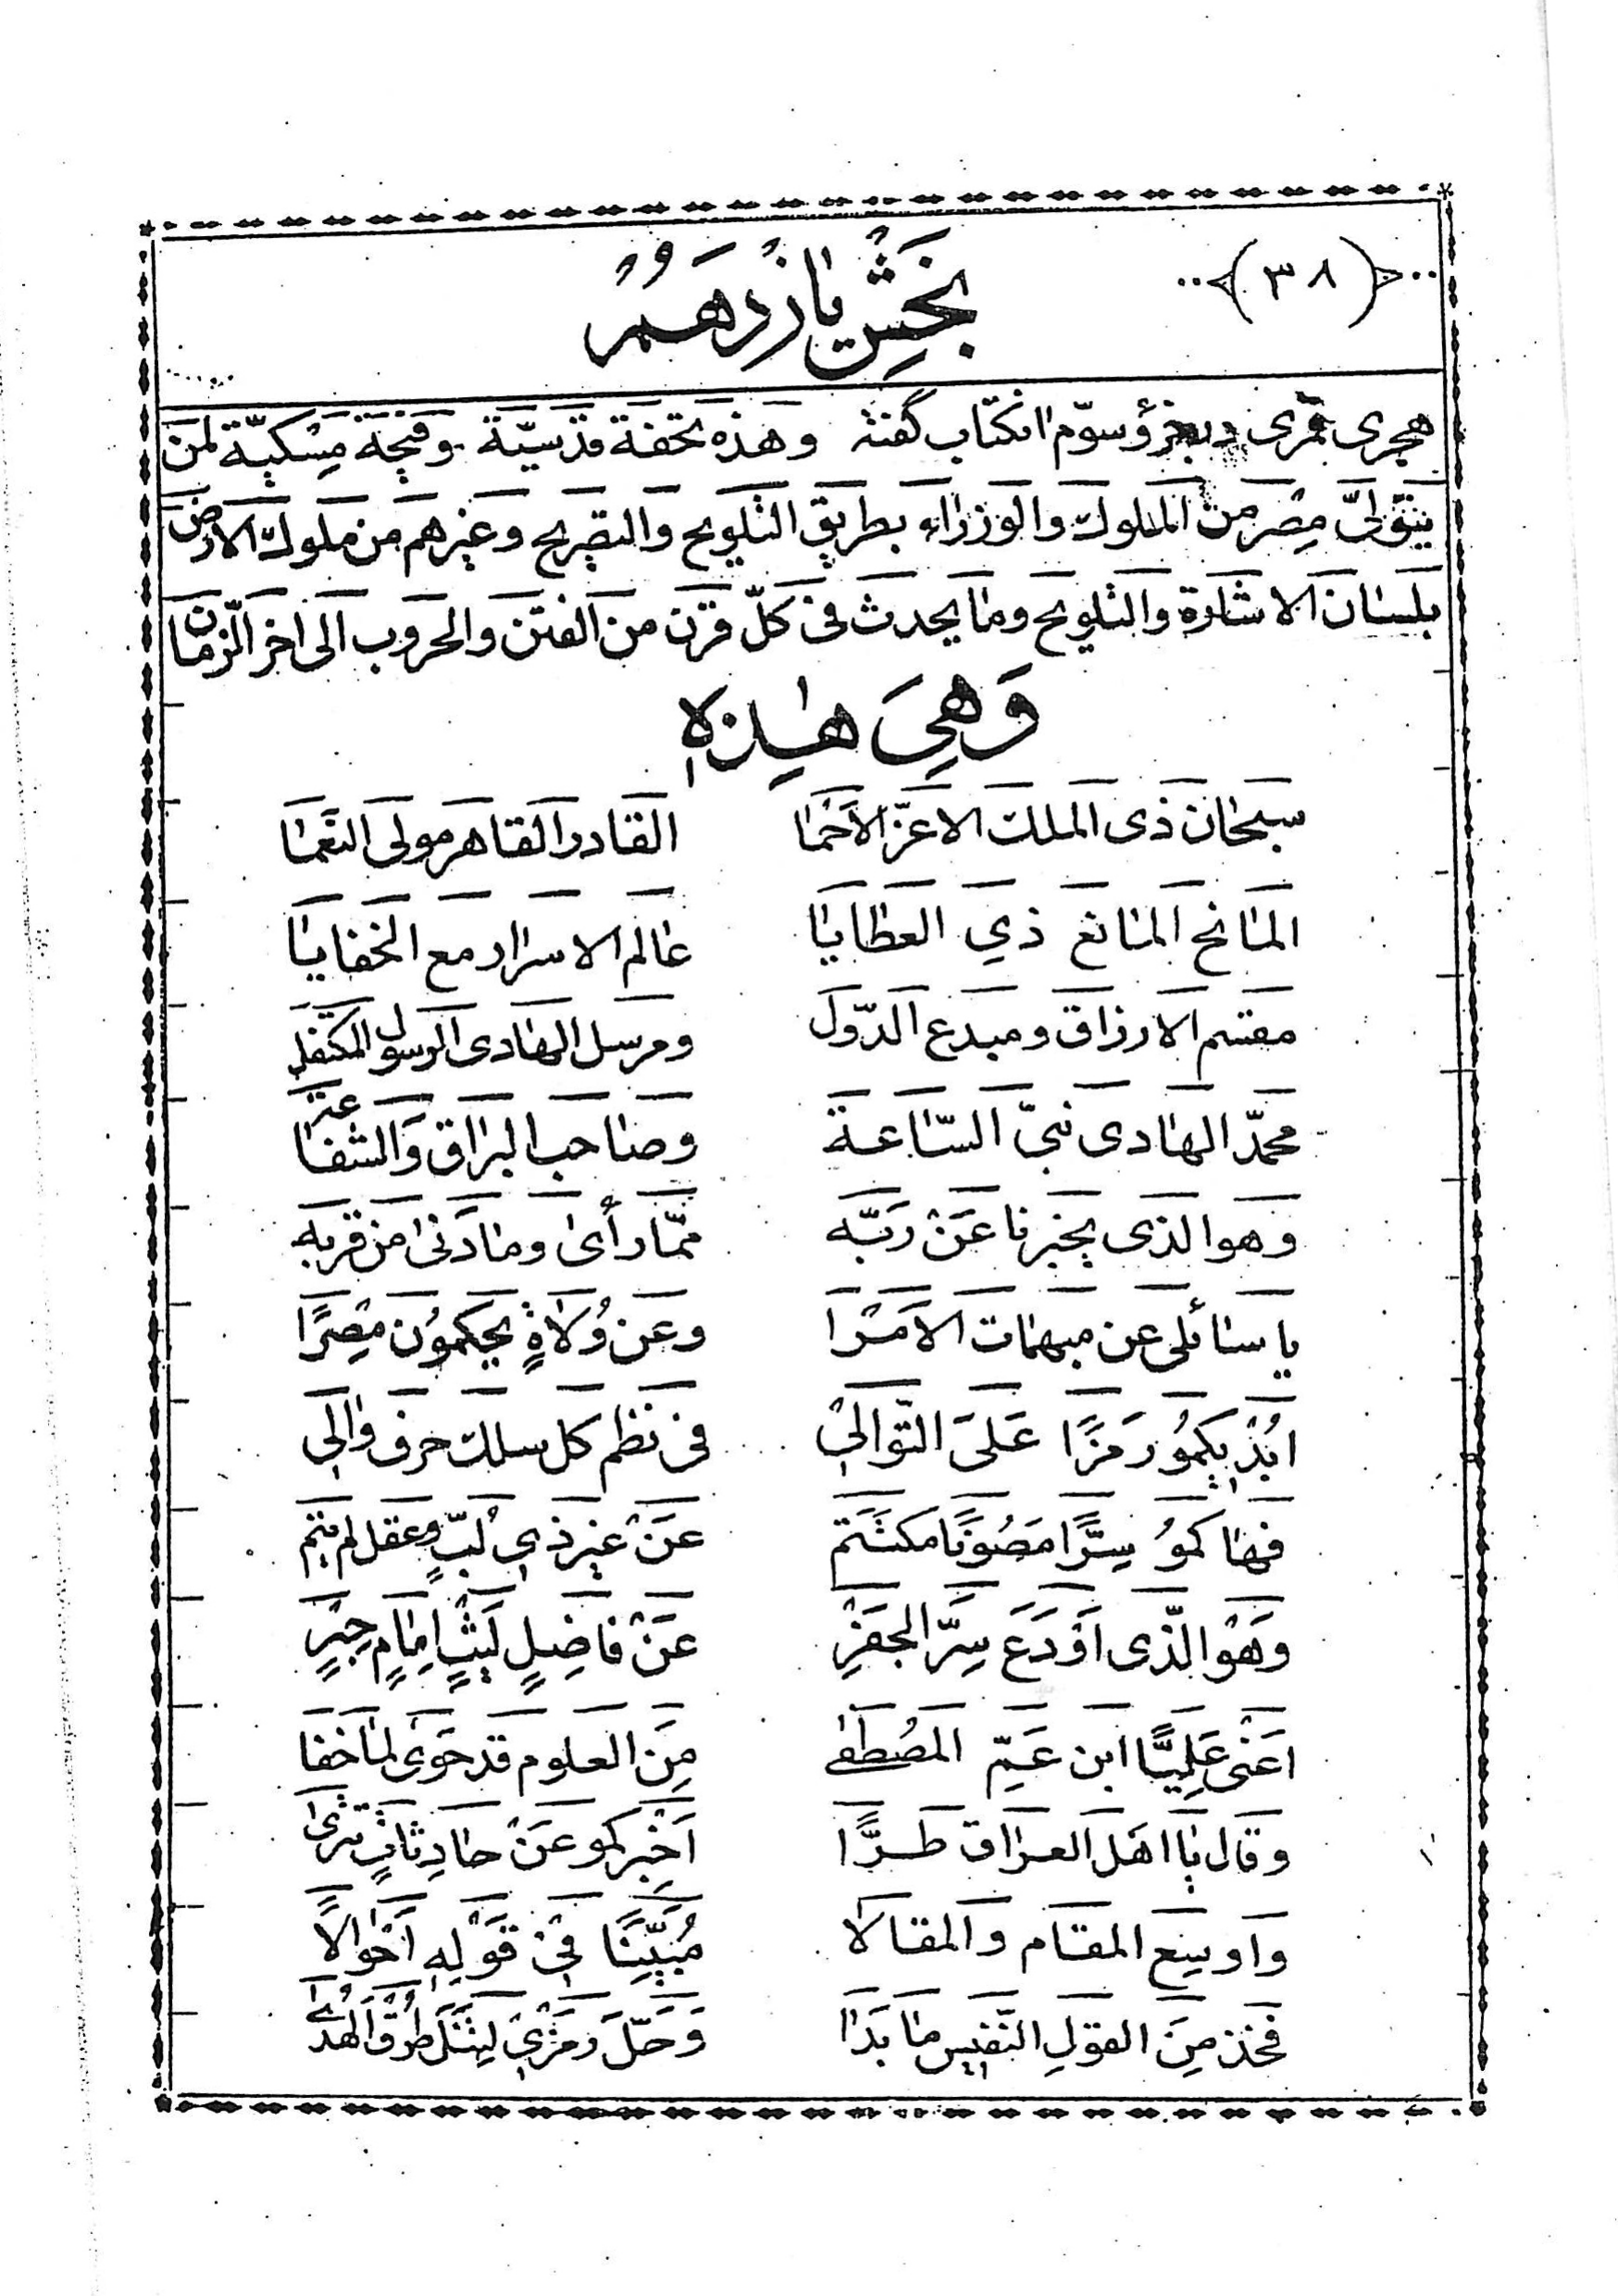 ﴿٣٨﴾
بخش یازدهم
هجری قمری در جزؤ سوّم ان کتاب گفته وهذه تحفة قدسیّة وفتحة مسکیّة لمن
یتولّی مِصْر من الملوك والوزراء بطریق التلویح والتصریح وغیرهم من ملوك الارض
بلسان الاشارة والتلویح وما یحدث فی کلّ قرن من الفتن والحروب الی اخر الزّمان
وَهِیَ هٰذِهِ
سبحان ذی الملك الاعزّ الاَحْمٰا القادر القاهر مولی النَعَمٰا
المانح المانع ذِی العطایا عالم الاسرار مع الخفایا
مقسّم الارزاق ومبدع الدّول ومرسل الهادی الرسول المکتفل
محمّد الهادی نبیّ السّاعة وصاحب البراق وَالشفاعة
وهو الذی یخبرنا عَنْ رَبّه ممّا رأی وما دَنٰی من قربه
یا سائلی عن مبهمات الاَمْرَا وعَن وُلاةٍ یحکموُن مِصْرًا
ابُدْیِکموُ رَمزًا عَلَی التّوالیْ فی نظم کل سلك حرف والِی
فهاکموُ سِرًّا مَصُونًا مکتَتَم عَنْ غیر ذی لُبٍّ وعقل لم یتم
وَهْوَ الّذی اَوْدَعَ سِرَّ الجَفْرِ عَنْ فاضِلٍ لَیْثٍ اِمامٍ حِبْرٍ
اعَنْی عَلِیًّا ابن عَمِّ المصُطَفٰی مِنَ العلوم قد حَویٰ لمٰا خَفا
وقال یا اهَل العراق طَرًّا اَخْبِرکمو عَنْ حادِثاتٍ تتریٰ
وَاوسِع المقام وَالمقالا مُبَیِّنًا فیْ قَوْلِهِ اَحْوالاً
فخذ مِنَ القولِ النّفیس مٰا بَدَا وَحَلّ رمْزیْ لِتَنَلَ طُرْقَ الهُدیٰ